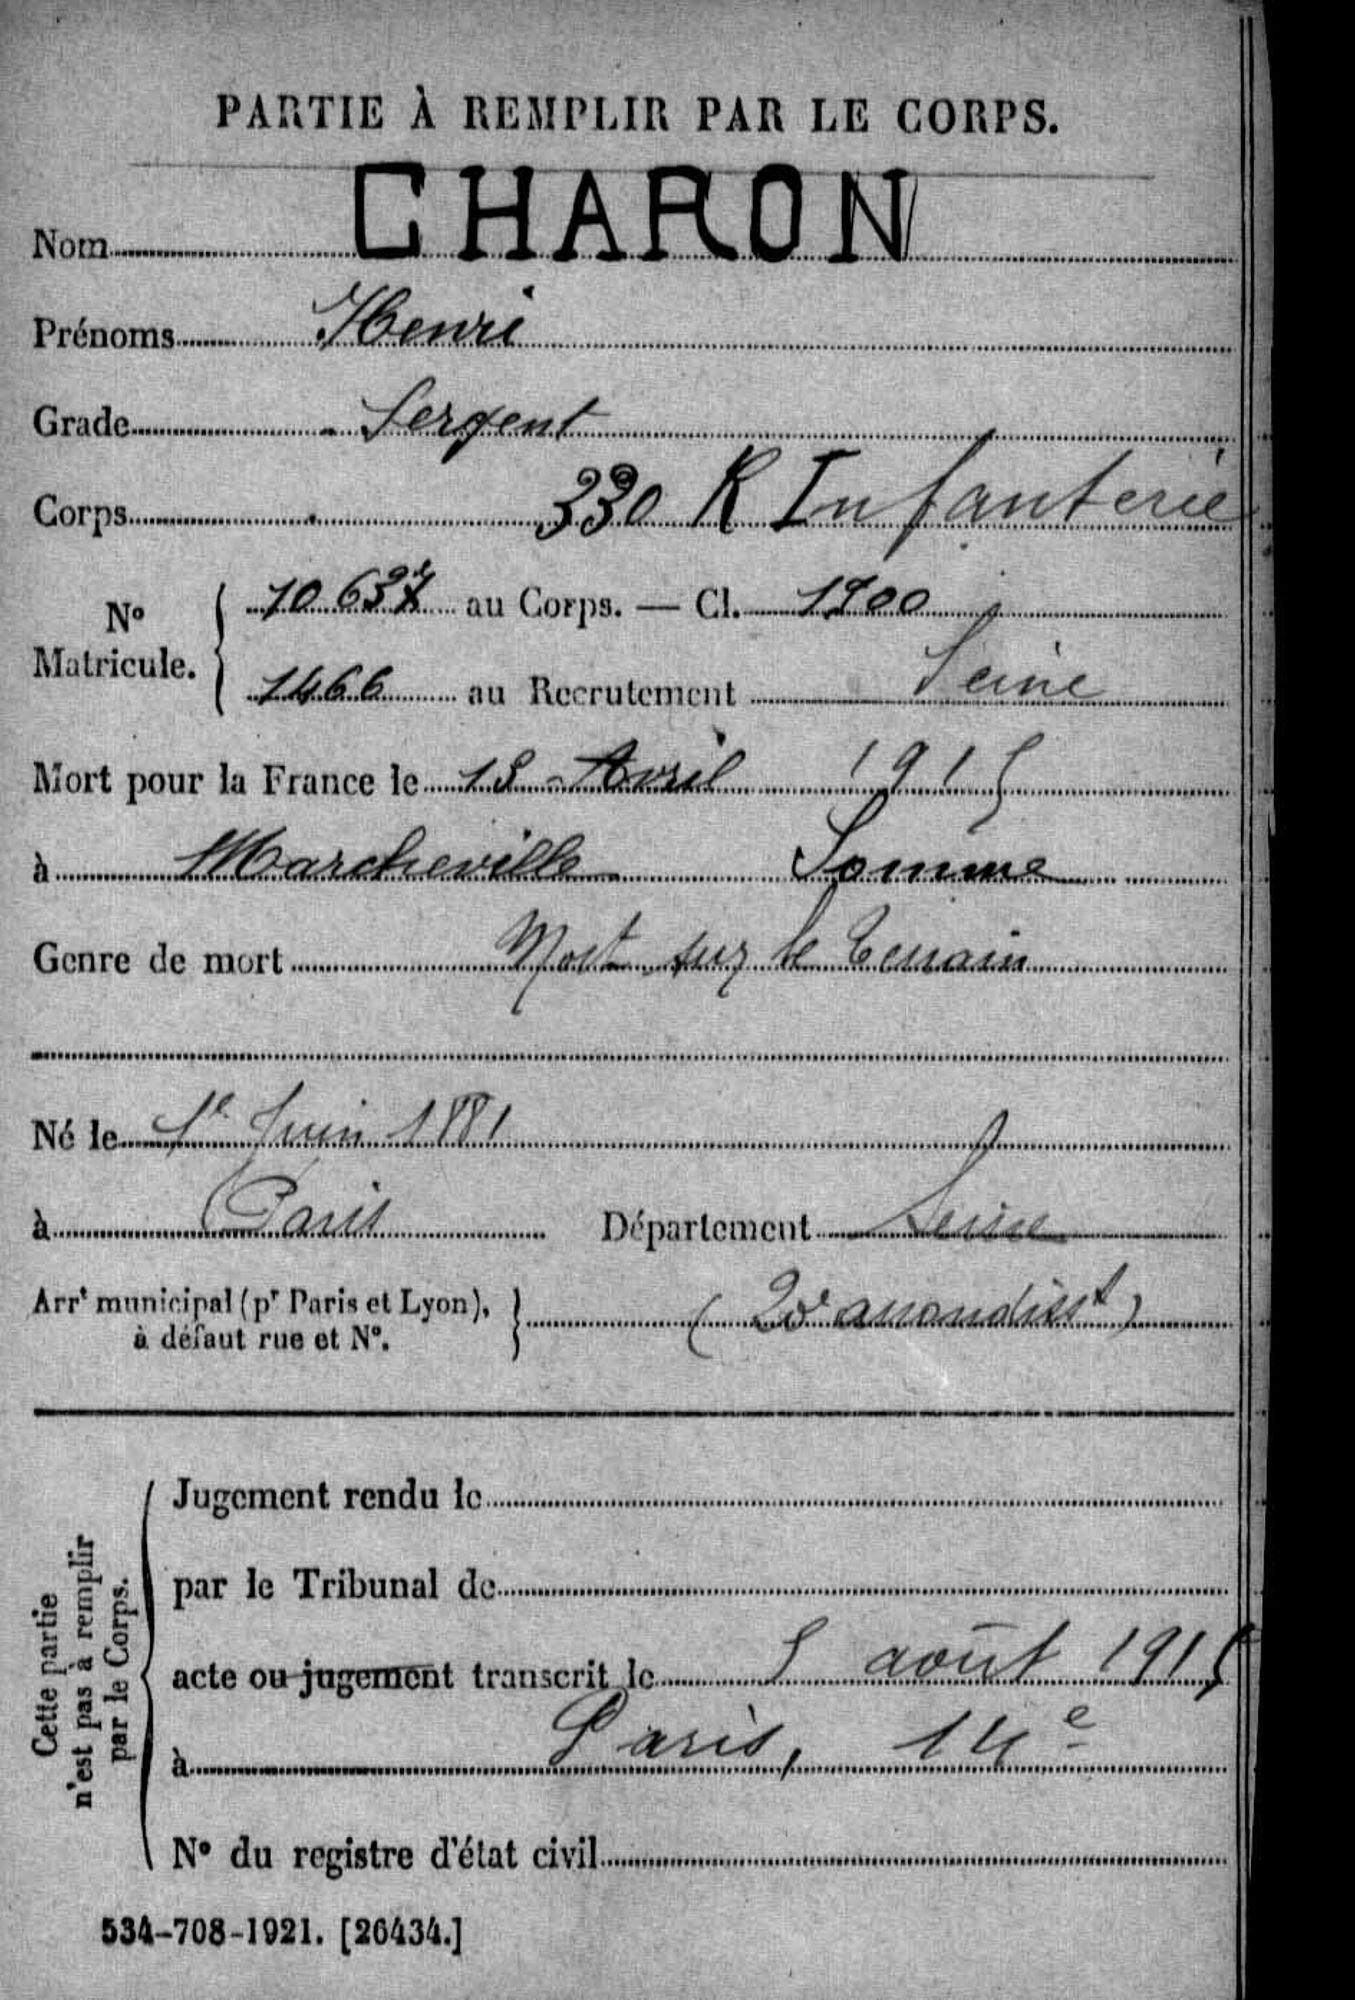 PARTIE À REMPLIR PAR LE CORPS.
Nom CHARON
Prénoms Henri
Grade Sergent
Corps 330 R Infanterie
N° Matricule. 10637 au Corps. — Cl. 1900
1466 au Recrutement Seine
Mort pour la France le 18 Avril 1915
à Marcheville Somme
Genre de mort Mort sur le terrain
Né le 1e Juin 1881
à Paris Département Seine
Arrt municipal (pr Paris et Lyon), à défaut rue et N°. (20e arrondisst)
Cette partie n'est pas à remplir par le Corps.
Jugement rendu le
par le Tribunal de
acte ou jugement transcrit le 5 août 1915
à Paris, 14e
N° du registre d'état civil
534-708-1921. [26434.]